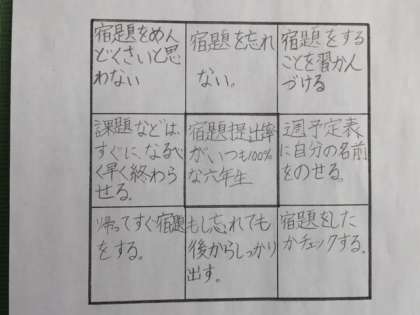 宿題をめん
どくさいと思
わない
宿題を忘れ
ない。
宿題をする
ことを習かん
づける
課題などは、
すぐに、なるべ
く早く終わら
せる。
宿題提出率
がいつも100%
な六年生
週予定表
に自分の名前
をのせる。
帰ってすぐ宿題
をする。
もし忘れても
後からしっかり
出す。
宿題をした
かチェックする。